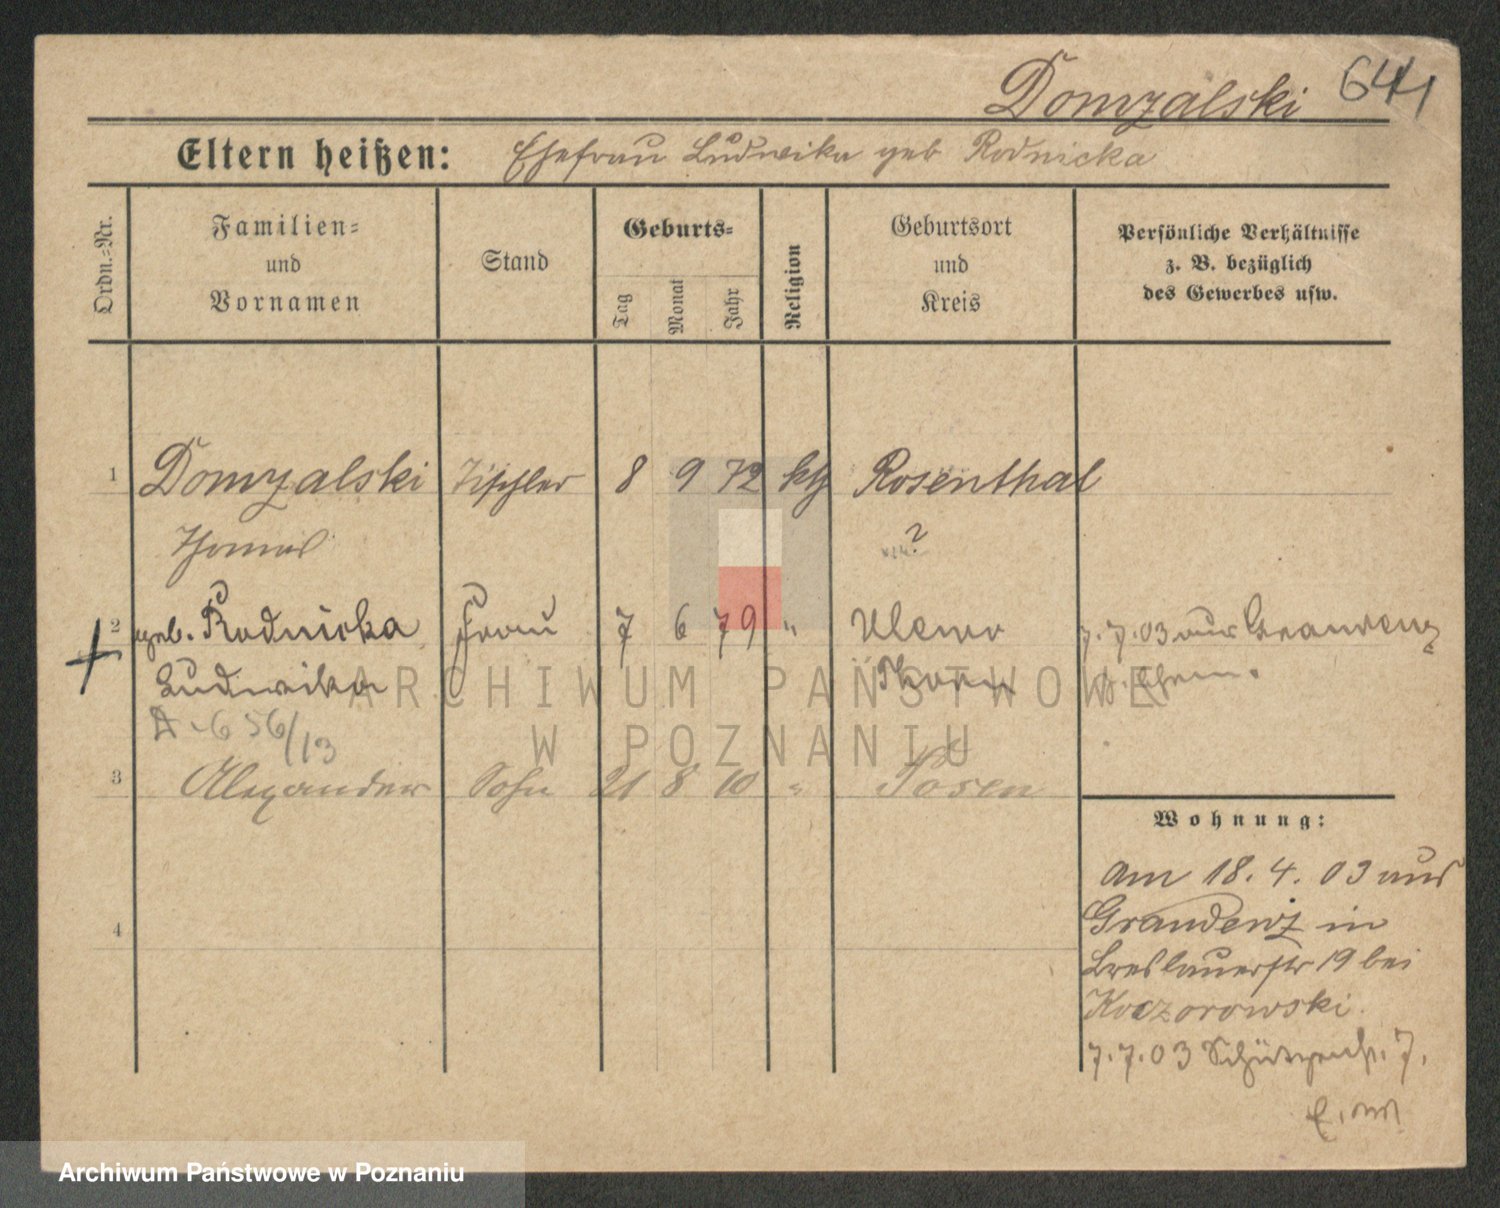 Domzalski 641
Eltern heißen: Ehefrau Ludwika geb Rodnicka
Ordn.=Nr.
Familien=
und
Vornamen
Stand
Geburts=
Tag
Monat
Jahr
Religion
Geburtsort
und
Kreis
Persönliche Verhältnisse
z. B. bezüglich
des Gewerbes usw.
1 Domzalski Tischler 8 9 72 kth Rosenthal
Thomas ?
2 geb. Rodnicka Frau 7 6 79 " 7.7.03 aus Graudenz
Ludwika Thorn
A-656/13
3 Alexander Sohn 21 8 10 " Posen
Wohnung:
am 18.4.03 aus
Graudenz in
Breslauerstr 19 bei
Koczorowski
7.7.03 Schützenstr. 7.
4
ARCHIWUM PAŃSTWOWE
W POZNANIU
Archiwum Państwowe w Poznaniu